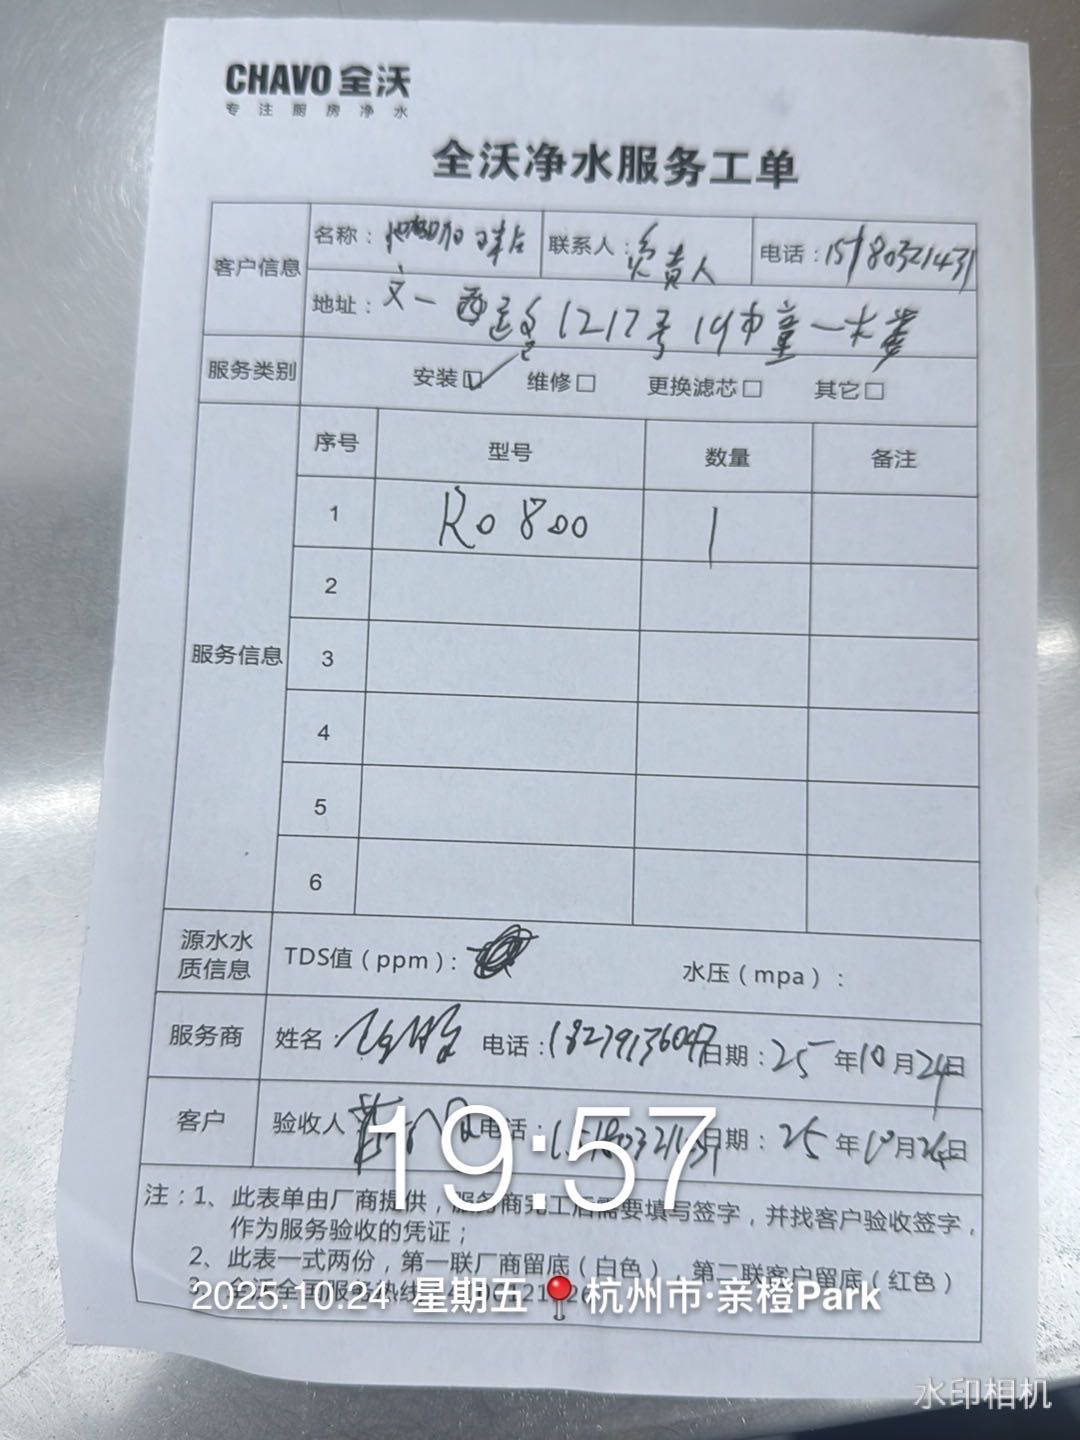 CHAVO 全沃
专注厨房净水
全沃净水服务工单
客户信息
名称：
联系人：负责人
电话：15180321431
地址：文一西路1217号
服务类别
安装☑ 维修□ 更换滤芯□ 其它□
服务信息
序号 型号 数量 备注
1 RO 800 1
2
3
4
5
6
源水水质信息
TDS值（ppm）： 水压（mpa）：
服务商 姓名： 电话：18279136047 日期：25年10月24日
客户 验收人 电话： 日期：25年10月24日
19:57
注：1、此表单由厂商提供，服务商完工后需要填写签字，并找客户验收签字，
作为服务验收的凭证；
2、此表一式两份，第一联厂商留底（白色），第二联客户留底（红色）
3、全沃全国服务热线
2025.10.24 星期五 杭州市·亲橙Park
水印相机